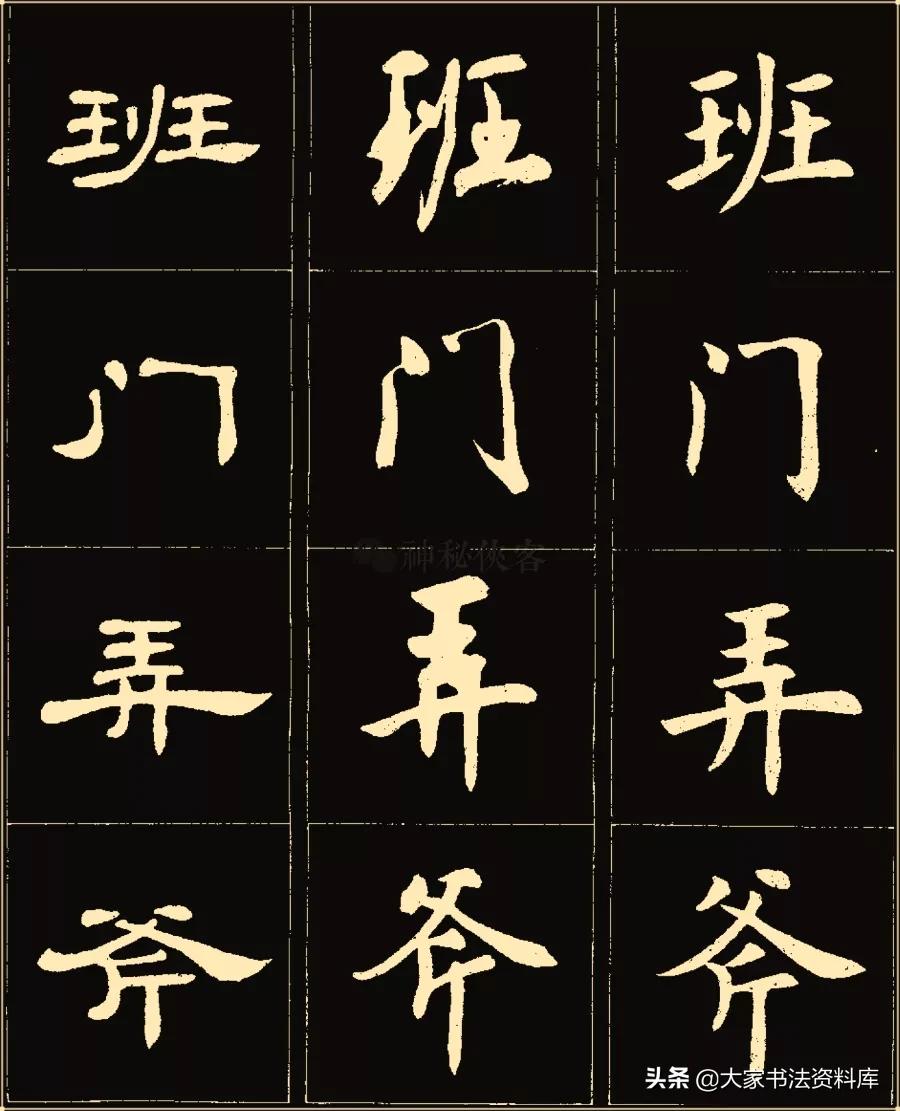 班 班 班
门 门 门
弄 弄 弄
神秘侠客
斧 斧 斧
头条 @大家书法资料库